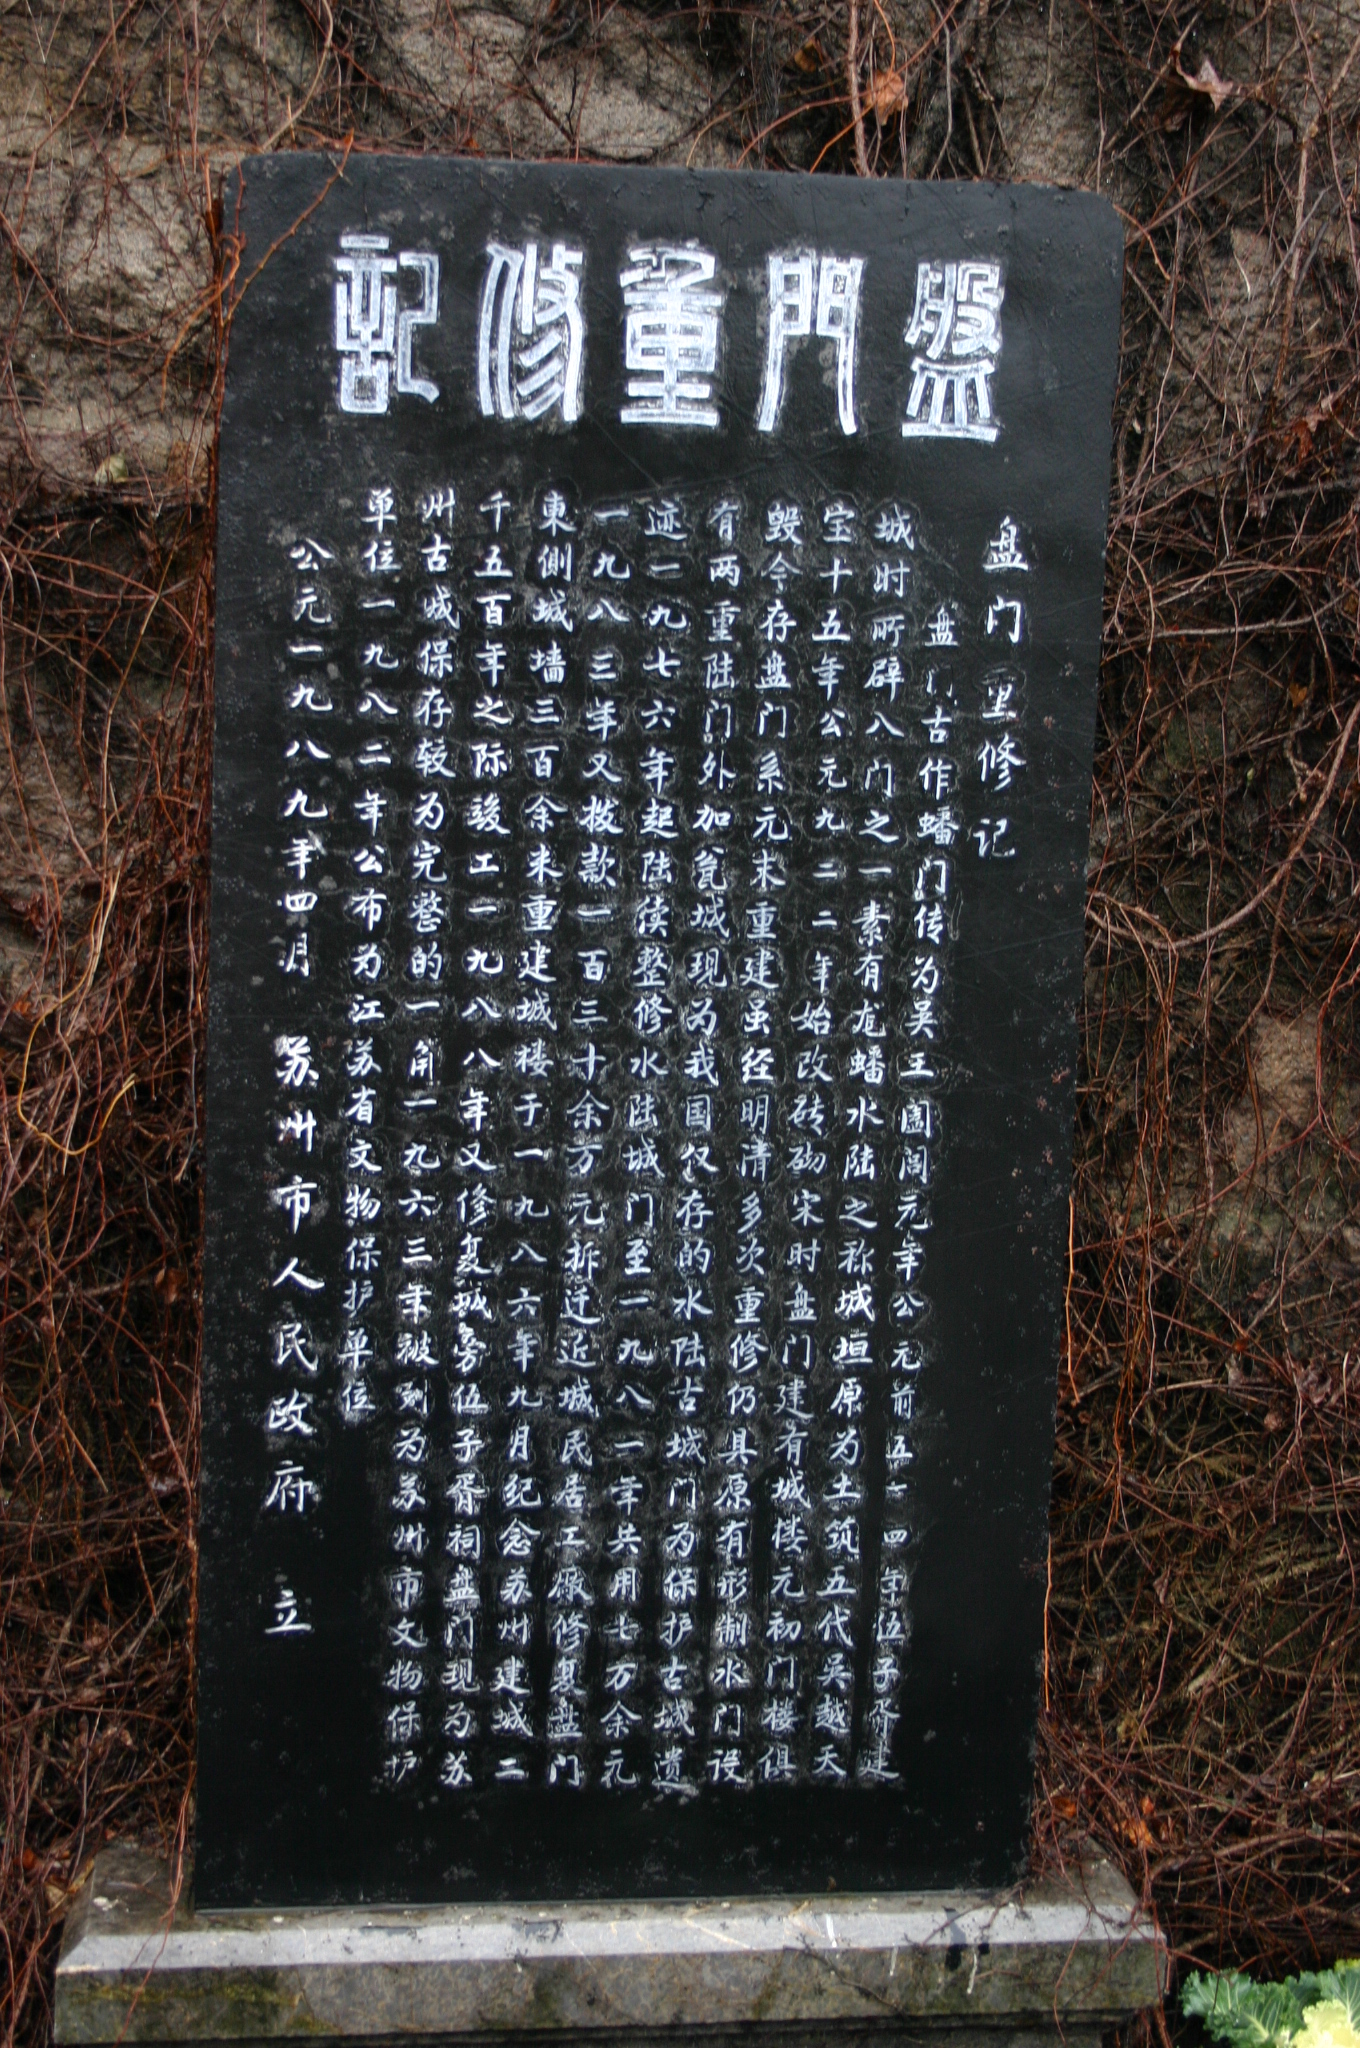 盤門重修記
盘门重修记
盘门古作蟠门传为吴王阖闾元年公元前五一四年伍子胥建
城时所辟八门之一素有龙蟠水陆之称城垣原为土筑五代吴越天
宝十五年公元九二二年始改砖砌宋时盘门建有城楼元初门楼俱
毁今存盘门系元末重建虽经明清多次重修仍具原有形制水门设
有两重陆门外加瓮城现为我国仅存的水陆古城门为保护古城遗
迹一九七六年起陆续整修水陆城门至一九八一年共用七万余元
一九八三年又拨款一百三十余万元拆迁近城民居工厰修复盘门
東側城墙三百余米重建城楼于一九八六年九月纪念苏州建城二
千五百年之际竣工一九八八年又修复城旁伍子胥祠盘门现为苏
州古城保存较为完整的一角一九六三年被列为苏州市文物保护
单位一九八二年公布为江苏省文物保护单位
公元一九八九年四月 苏州市人民政府 立